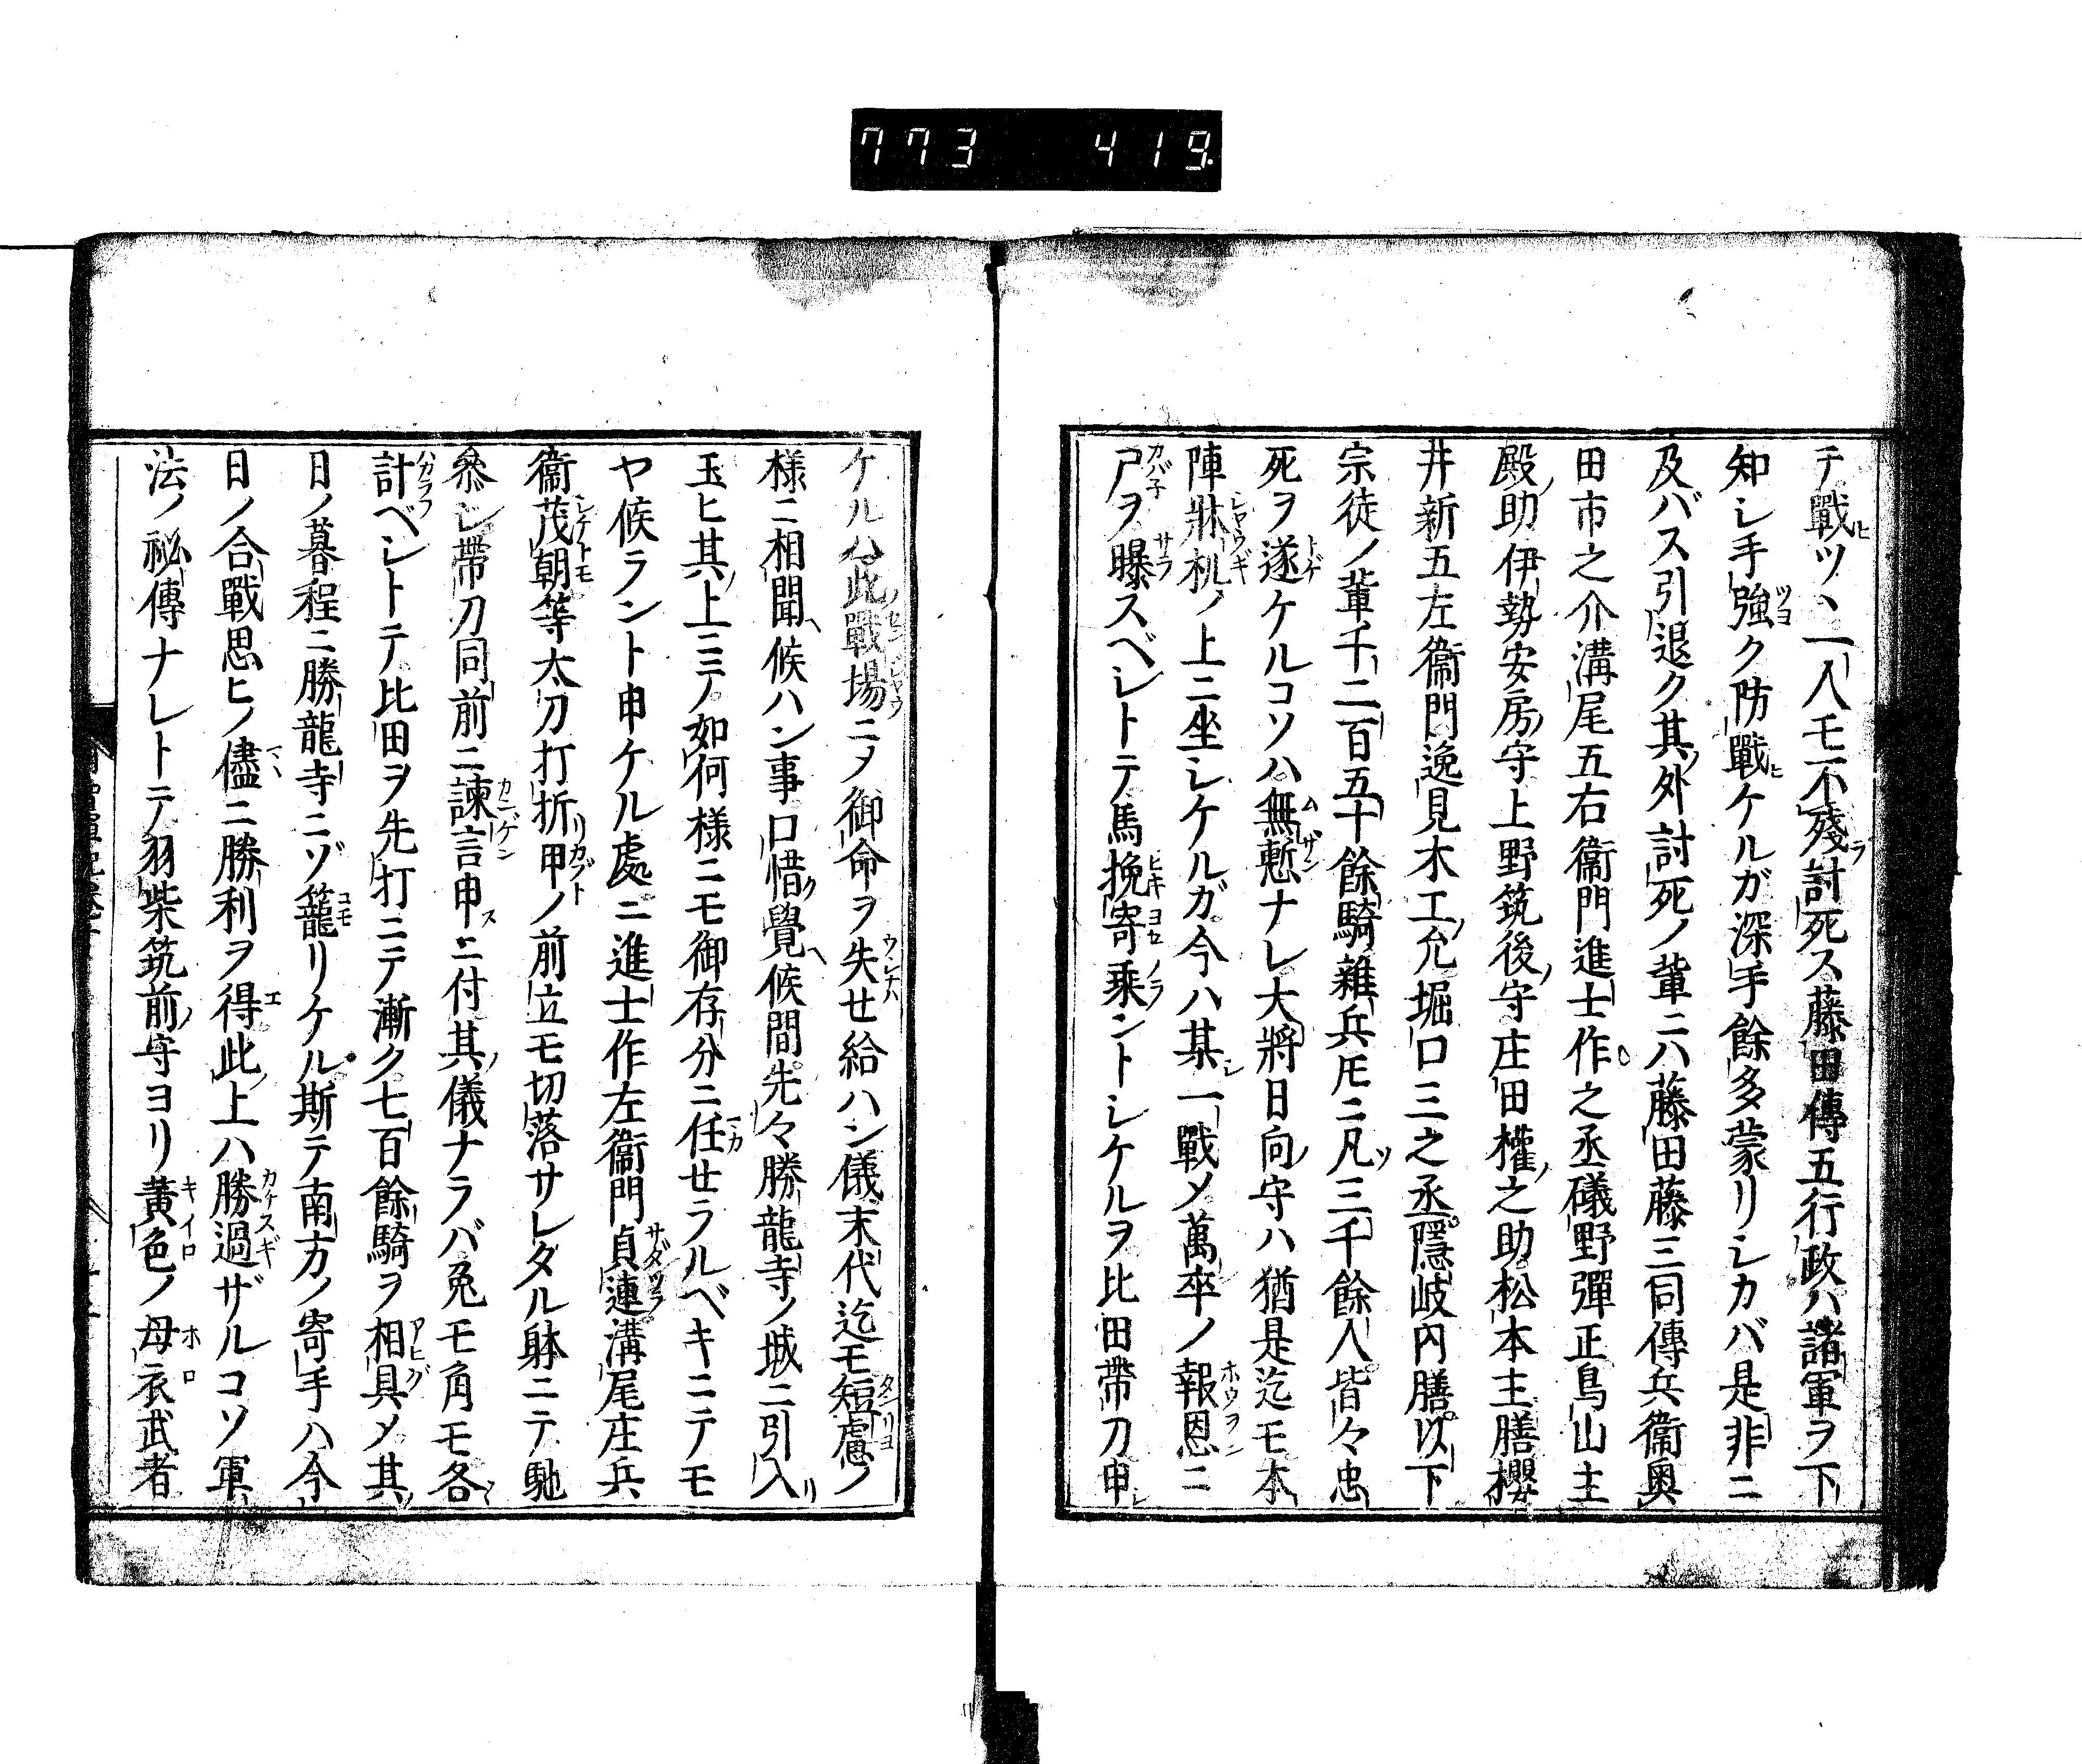 773 419
テ戰ツヽ一人モ不殘討死ス藤田傳五行政ハ諸軍ヲ下
知シ手強ク防戰ケルガ深手餘多蒙リシカバ是非ニ
及バス引退ク其外討死ノ輩ニハ藤田藤三同傳兵衞奥
田市之介溝尾五右衞門進士作之丞礒野彈正鳥山主
殿助伊勢安房守上野筑後守庄田權之助松本主膳櫻
井新五左衞門逸見木工允堀口三之丞隱岐内膳以下
宗徒ノ輩千二百五十餘騎雜兵𪜈ニ凡三千餘人皆々忠
死ヲ遂ケルコソハ無慙ナレ大將日向守ハ猶是迄モ本
陣牀机ノ上ニ坐シケルガ今ハ某一戰〆萬卒ノ報恩ニ
尸ヲ曝スベシトテ馬挽寄乘ントシケルヲ比田帶刀申
ケルハ此戰場ニ〆御命ヲ失セ給ハン儀末代迄モ短慮ノ
樣ニ相聞候ハン事口惜覺候間先々勝龍寺ノ城ニ引入
玉ヒ其上ニテノ如何樣ニモ御存分ニ任セラルベキニテモ
ヤ候ラント申ケル處ニ進士作左衞門貞連溝尾庄兵
衞茂朝等太刀打折甲ノ前立モ切落サレダル躰ニテ馳
參シ帶刀同前ニ諫言申ニ付其儀ナラバ兎モ角モ各
計ベシトテ比田ヲ先打ニテ漸ク七百餘騎ヲ相具〆其
日ノ暮程ニ勝龍寺ニゾ籠リケル斯テ南方ノ寄手ハ今
日ノ合戰思ヒノ儘ニ勝利ヲ得此上ハ勝過ザルコソ軍
法ノ祕傳ナレトテ羽柴筑前守ヨリ黄色ノ母衣武者